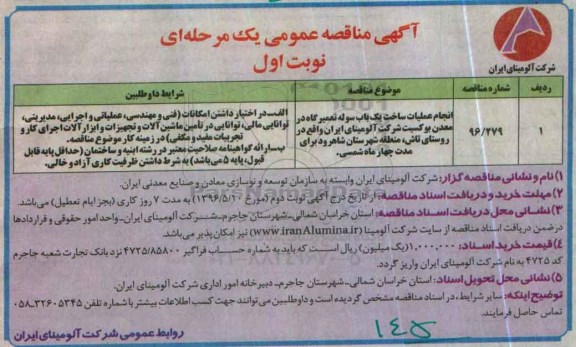 آگهی مناقصه عمومی یک مرحله‌ای
نوبت اول
شرکت آلومینای ایران
ردیف
شماره مناقصه
موضوع مناقصه
شرایط داوطلبین
۱
۹۶/۲۷۹
انجام عملیات ساخت یک باب سوله تعمیرگاه در
معدن بوکسیت شرکت آلومینای ایران واقع در
روستای تاش، منطقه شهرستان شاهرود برای
مدت چهار ماه شمسی.
الف‌ـ در اختیار داشتن امکانات (فنی و مهندسی، عملیاتی و اجرایی، مدیریتی،
توانایی مالی، توانایی در تأمین ماشین‌آلات و تجهیزات و ابزارآلات اجرای کار و
تجربیات مفید و مکفی) در زمینه کار موضوع مناقصه.
ب‌ـ ارائه گواهینامه صلاحیت معتبر در رشته ابنیه و ساختمان (حداقل پایه قابل
قبول، پایه ۵ می‌باشد) به شرط داشتن ظرفیت کاری آزاد و خالی.
۱) نام و نشانی مناقصه گزار: شرکت آلومینای ایران وابسته به سازمان توسعه و نوسازی معادن و صنایع معدنی ایران.
۲) مهلت خرید و دریافت اسناد مناقصه: از تاریخ درج آگهی نوبت دوم (مورخ ۱۳۹۶/۵/۱۰) به مدت ۷ روز کاری (بجز ایام تعطیل) می‌باشد.
۳) نشانی محل دریافت اسناد مناقصه: استان خراسان شمالی‌ـ شهرستان جاجرم‌ـ شرکت آلومینای ایران‌ـ واحد امور حقوقی و قراردادها
درضمن دریافت اسناد مناقصه از سایت شرکت آلومینا (www.iranAlumina.ir) نیز امکان پذیر می‌باشد.
۴) قیمت خرید اسناد: ۱,۰۰۰,۰۰۰ (یک میلیون) ریال است که باید به شماره حساب فراگیر ۴۷۲۵/۸۵۸۰۰ نزد بانک تجارت شعبه جاجرم
کد ۴۷۲۵ به نام شرکت آلومینای ایران واریز گردد.
۵) نشانی محل تحویل اسناد: استان خراسان شمالی‌ـ شهرستان جاجرم‌ـ دبیرخانه امور اداری شرکت آلومینای ایران.
توضیح اینکه: سایر شرایط، در اسناد مناقصه مشخص گردیده است و داوطلبین می‌توانند جهت کسب اطلاعات بیشتر با شماره تلفن ۳۲۶۰۵۳۴۵-۰۵۸
تماس حاصل فرمایند.
روابط عمومی شرکت آلومینای ایران
۱۴۵